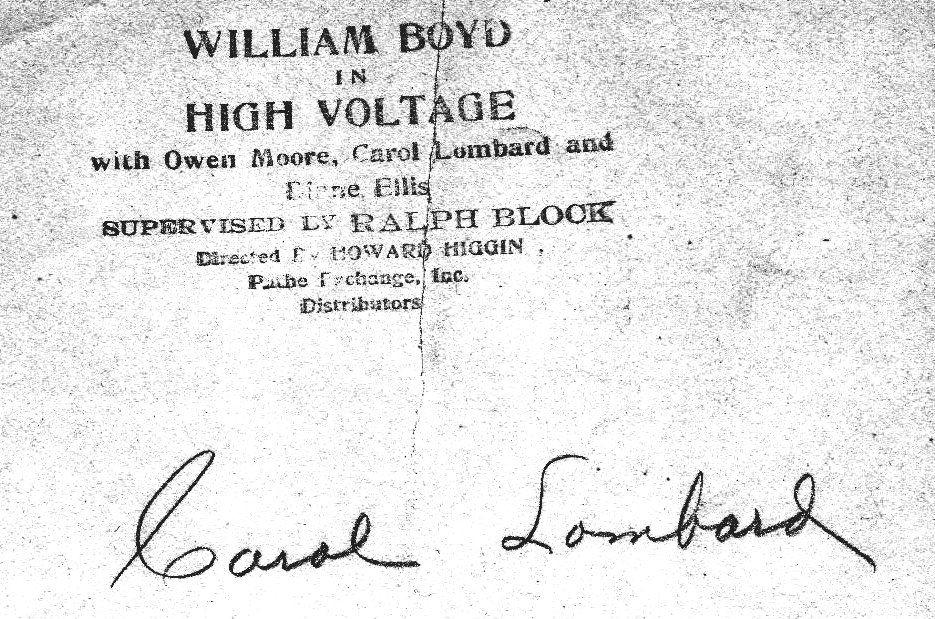 WILLIAM BOYD
IN
HIGH VOLTAGE
with Owen Moore, Carol Lombard and
Diane Ellis
SUPERVISED BY RALPH BLOCK
Directed By HOWARD HIGGIN
Pathe Exchange, Inc.
Distributors
Carol Lombard